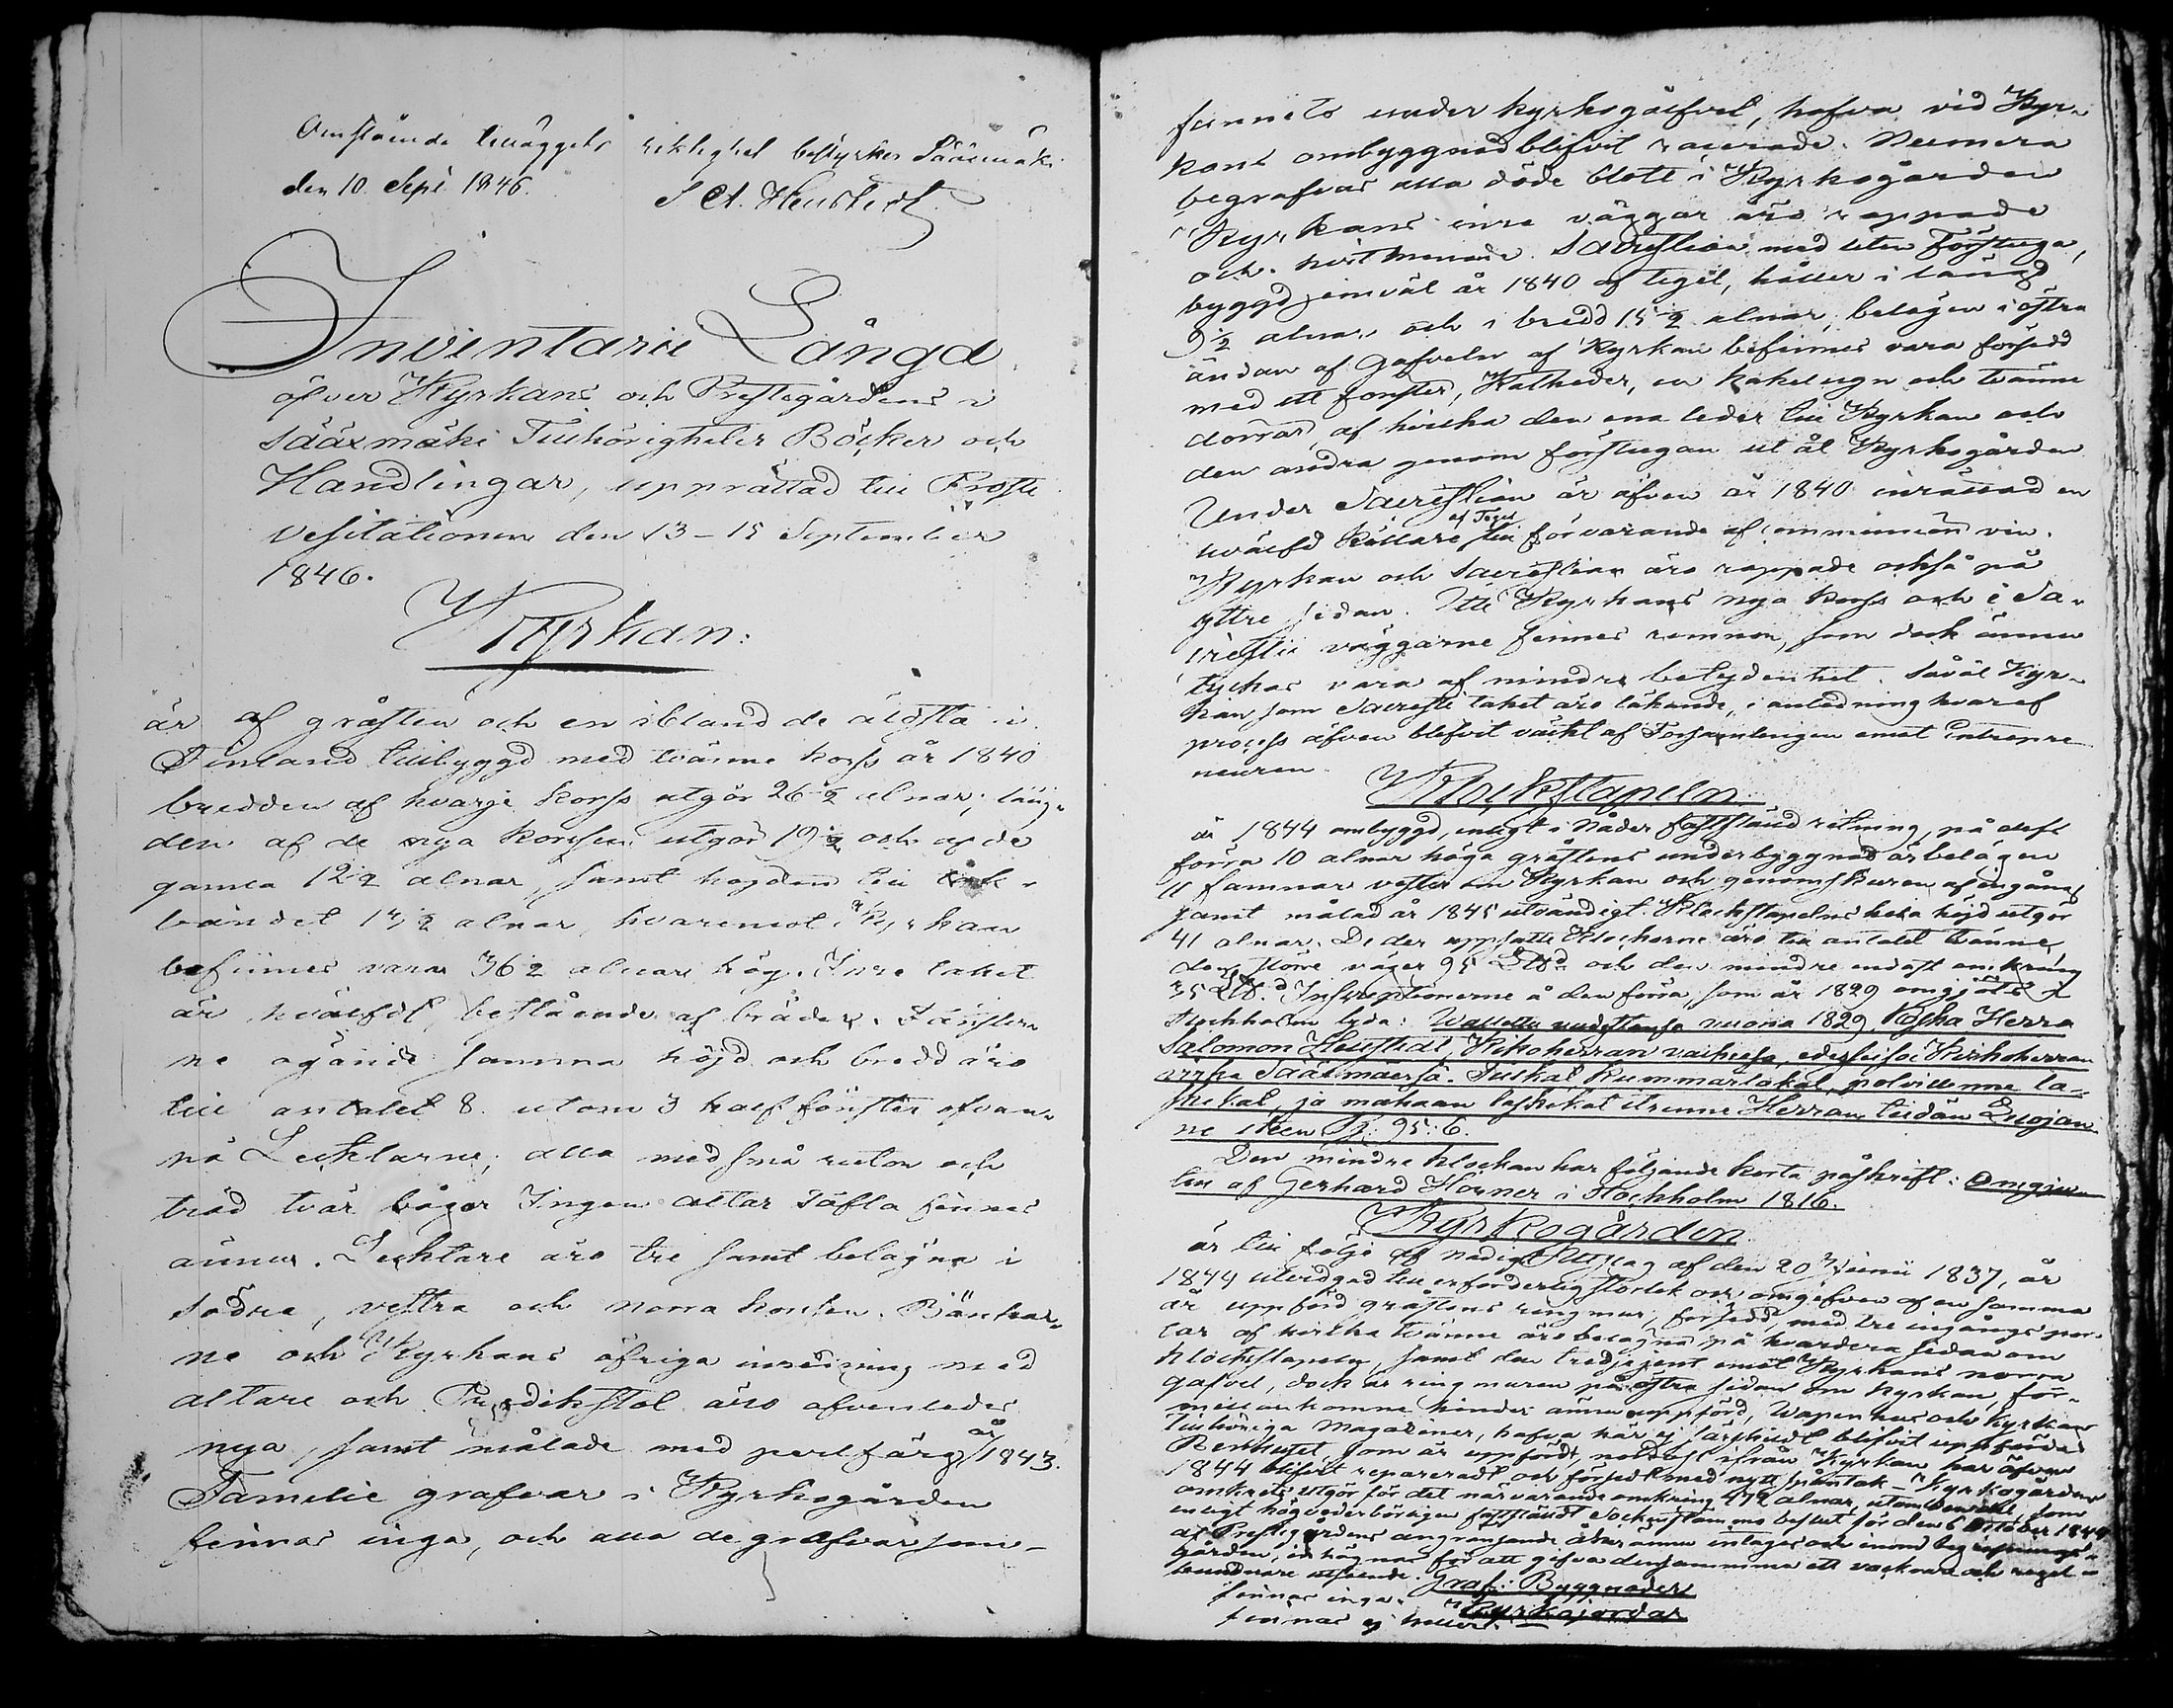 Omstående tilläggets riktighet bestyrker Sääxmäki
den 10 Sept 1846. S A. Heurlin
Inventarie Längd
öfver Kyrkans och Prestegårdens i
Sääxmäki Tillhörigheter Böcker och
Handlingar, upprättad till Prosts
Visitationen den 13–15 September
1846.
Kyrkan:
är af gråsten och en ibland de äldsta i
Finland tillbyggd med tvänne korss år 1840
bredden af hvarje korss utgör 26 1/2 alnar; läng-
den af de nya korssen utgör 19 1/2 och af de
gamla 12 1/2 alnar, samt höjden till tak-
bandet 1 1/2 alnar, hvaremot Kyrkan
befinnes vara 36 1/2 alnar hög. Inre taket
är hvälfdt, bestående af bräder. Fönstren
ne ägande samma höjd och bredd äro
till antalet 8 utom 3 half fönster ofvan-
på Lecktarne; alla med små rutor och
träd tvär bågar Ingen altar Tafla finnes
ännu. Lecktare äro tre samt belägna i
södra, vestra och norra korssen. Bänkar-
ne och Kyrkans öfriga inredning med
altare och Predikstol äro afvenledes
nya, samt målade med perlfärg år 1843.
Familie grafvar i Kyrkogården
finnas inga, och alla de grafvar som
funnits under kyrkogolfvet, hafva vid Kyr-
kans ombyggnad blifvit raserade. Numera
begrafvas alla döde blott i Kyrkogården
Kyrkans inre väggar äro rappade
och hvitmenade. Sacristian med uten Förstuga,
byggd jemväl år 1840 af tegel, håller i längd
9 1/2 alnar och i bredd 15 1/2 alnar, belägen i östra
ändan af Gafveln af Kyrkan befinnes vara försedd
med ett fönster, Katheder, en kakelugn och tvänne
dörrar, af hvilka den ena leder till Kyrkan och
den andra genom förstugan ut åt Kyrkogården
Under Sacristian är äfven år 1840 inrättad en
hvälfd Källare af Tegel till förvarande af communion vin.
Kyrkan och Sacristian äro rappade också på
yttre sidan. Uti Kyrkans nya korss och i Sa-
cristie väggarne finnes remnor, som dock ännu
tyckas vara af mindre betydenhet. Såväl Kyr-
kan som Sacristi taket äro läkande, i anledning hvaraf
process äfven blifvit väckt af Församlingen emot Entrepre
neuren.
Klockstapeln
är 1844 ombyggd, enligt i Nåder fastställd ritning, på dess
förra 10 alnar höga gråstens underbyggnad är belägen
11 famnar vester om Kyrkan och genomskuren af ingång
samt målad år 1845 utvändigt. Klockstapelns hela höjd utgör
41 alnar. De der uppsatte Klockorne äro till antalet tvänne,
den större väger 95 LU och den mindre endast omkring
35 LU. Inscriptionerne å den förra, som år 1829 omgjöts i
Stockholm lyda: Walettu uudestansa vuona 1829, koska Herra
Salomon Heurlin, Kirkoherran vaihessa, edesseisoi Kirkoherran
virkaa Sääxmäessä. Tulkat kummartakat, polvillenne la-
skekat, ja mahaan laskekat etenne Herran teidän Luojan-
ne eteen Ps: 95:6.
Den mindre klockan har följande korta påskrift: Omgju-
ten af Gerhard Horner i Stockholm 1816.
Kyrkogården
är till följe af nådigt Utslag af den 20 Junii 1837, år
1844 utvidgad till erforderlig storlek och omgifven af en samma
år uppförd gråstens ringmur, försedd med tre ingångs por-
tar af hvilka tvänne äro belägna på hvardera sidan om
Klockstapeln, samt den tredje jemt emot Kyrkans norra
gafvel, dock är ringmuren på östra sidan om Kyrkan, för-
medelst komne hinder ännu uppförd, Wapenhus och Kyrkan
tillhöriga Magasiner, hafva här ej särskildt blifvit uppförde
som är uppfördt, nordost ifrån Kyrkan har äfven
1844 blifvit repareradt och försedt med nytt spåntak – Kyrkogårdens
omkrets utgör för det närvarande omkring 472 alnar, utom den del som
enligt högvederbörligen fastställdt Sockenstämmo beslut för den 6 October 1844
af Prestgårdens angränsande åker ännu intages och inom begrafnings-
gården, inhägnas för att gifva densamma ett vackrare och regel-
bundnare utseende. Graf: Byggnader
finnas inga. Kyrkojordar
finnas ej heller.